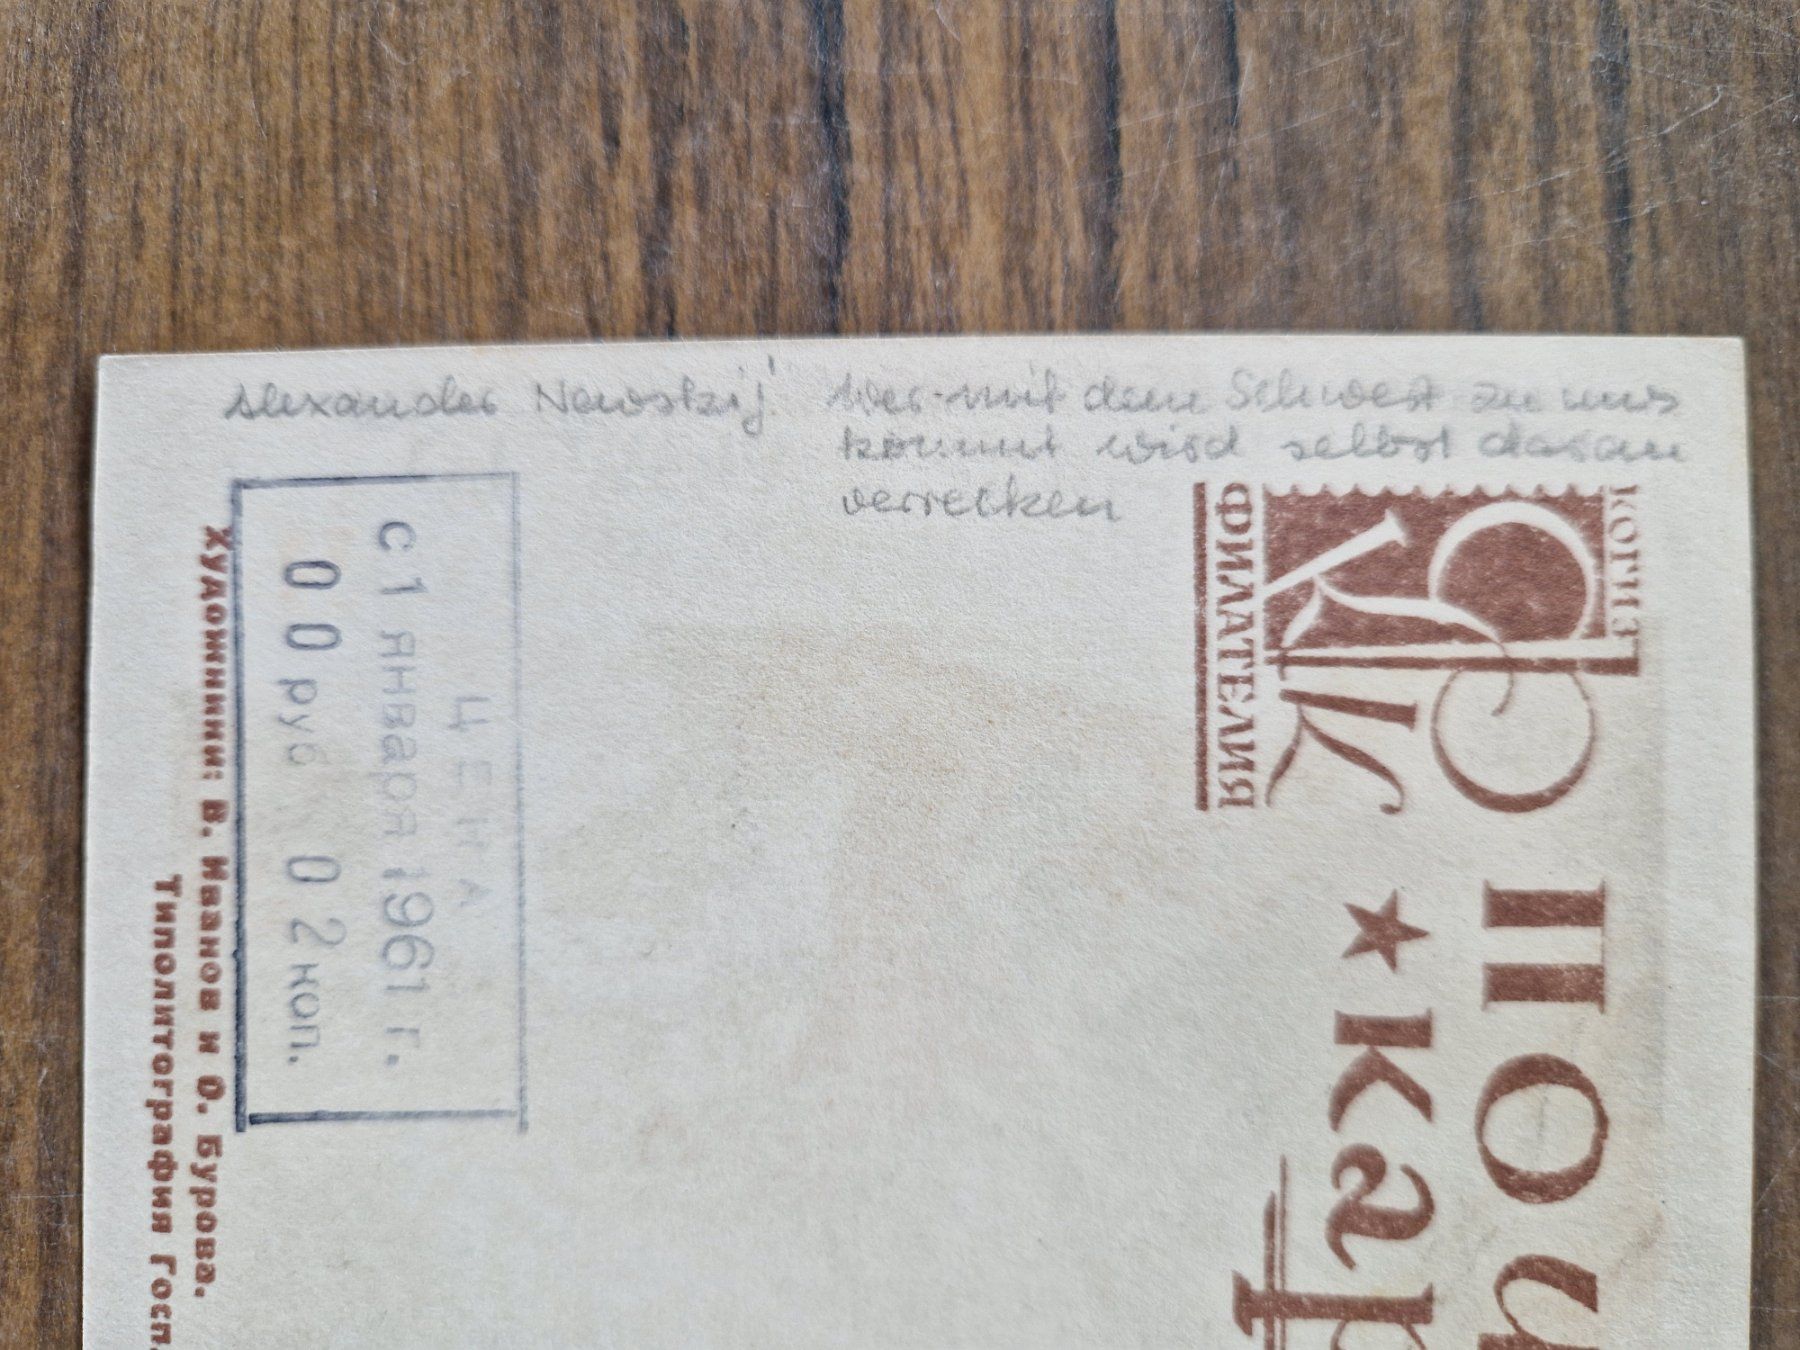 Alexander Newskij' Wer mit dem Schwert zu uns
kommt wird selbst daran
verrecken
КОГИЗ
СФК
ФИЛАТЕЛИЯ
ПОЧ
★ Кар
ЦЕНА
С 1 января 1961 г.
00 руб 02 коп.
Художники: В. Иванов и О. Бурова.
Типолитография Госп.